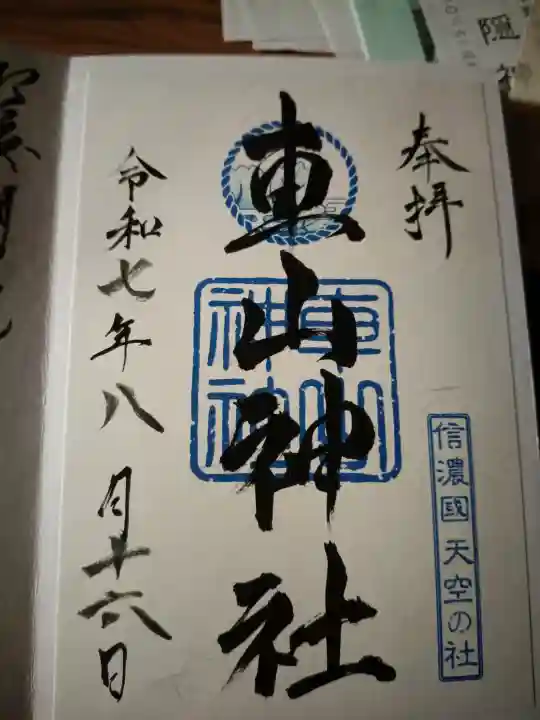 奉拝
信濃國 天空の社
車山神社
車山神社
令和七年八月十六日